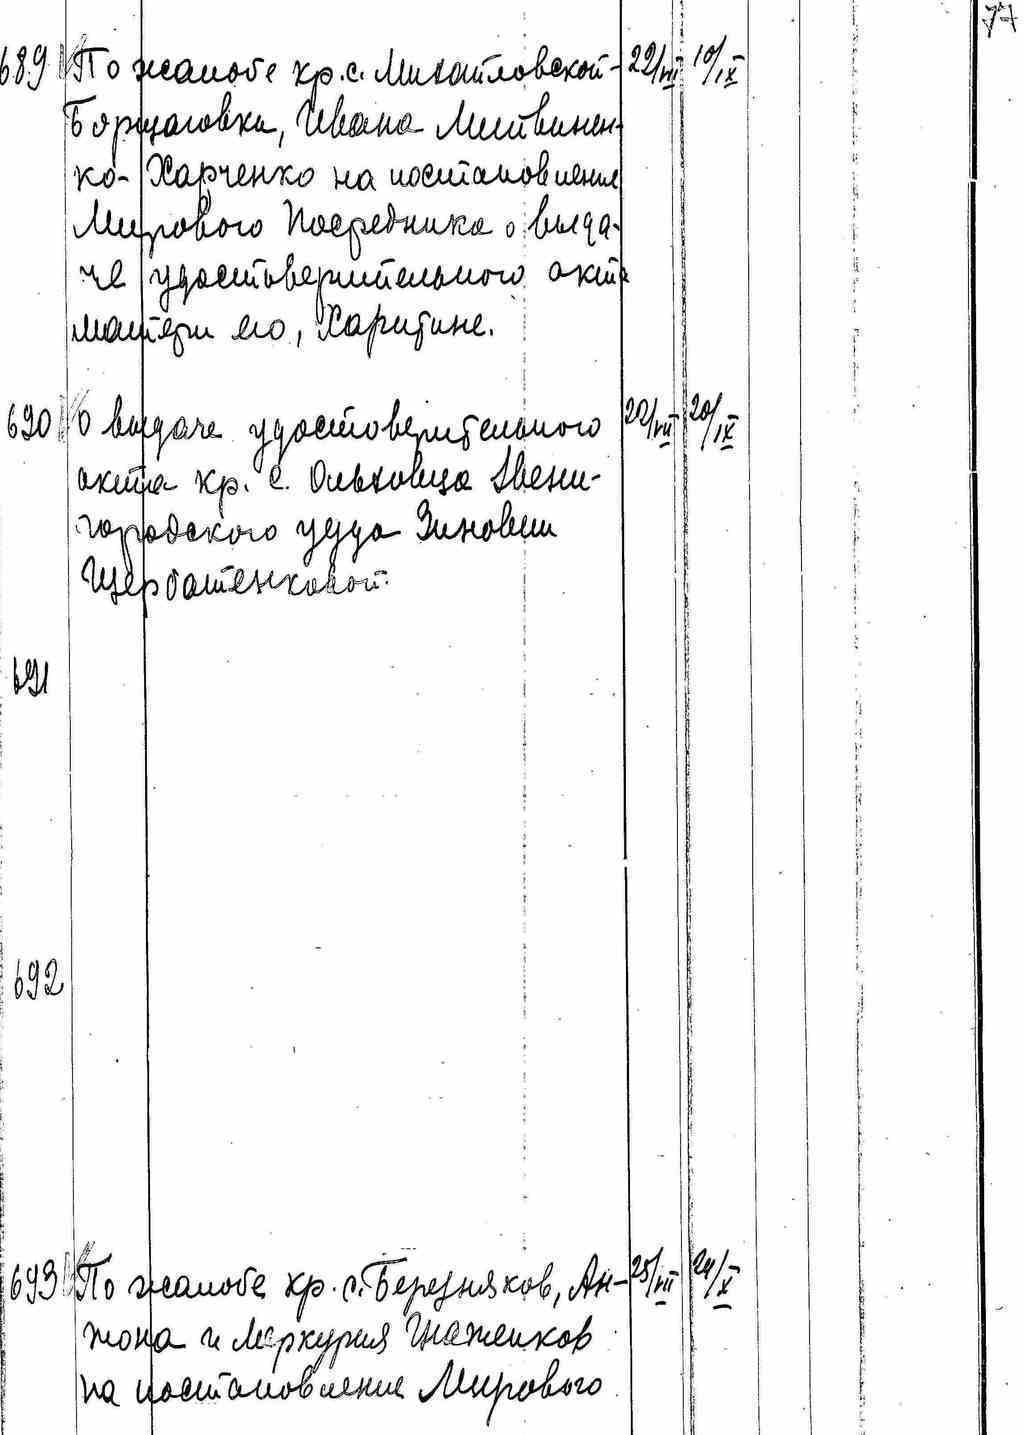 77
689 По жалобе кр. с. Михайловской- 22/VII 10/IX
Борщаговки, Ивана Литвинен-
ко-Харченко на постановление
Мирового Посредника о выда-
че удостоверительного акта
матери его, Харитине.
690 О выдаче удостоверительного 22/VII 20/IX
акта кр. с. Ольховца Звени-
городского уезда Зиновии
Щербатенковой.
691
692
693 По жалобе кр. с. Березняков, Ан- 25/VII 24/X
и Меркурия
на постановление Мирового